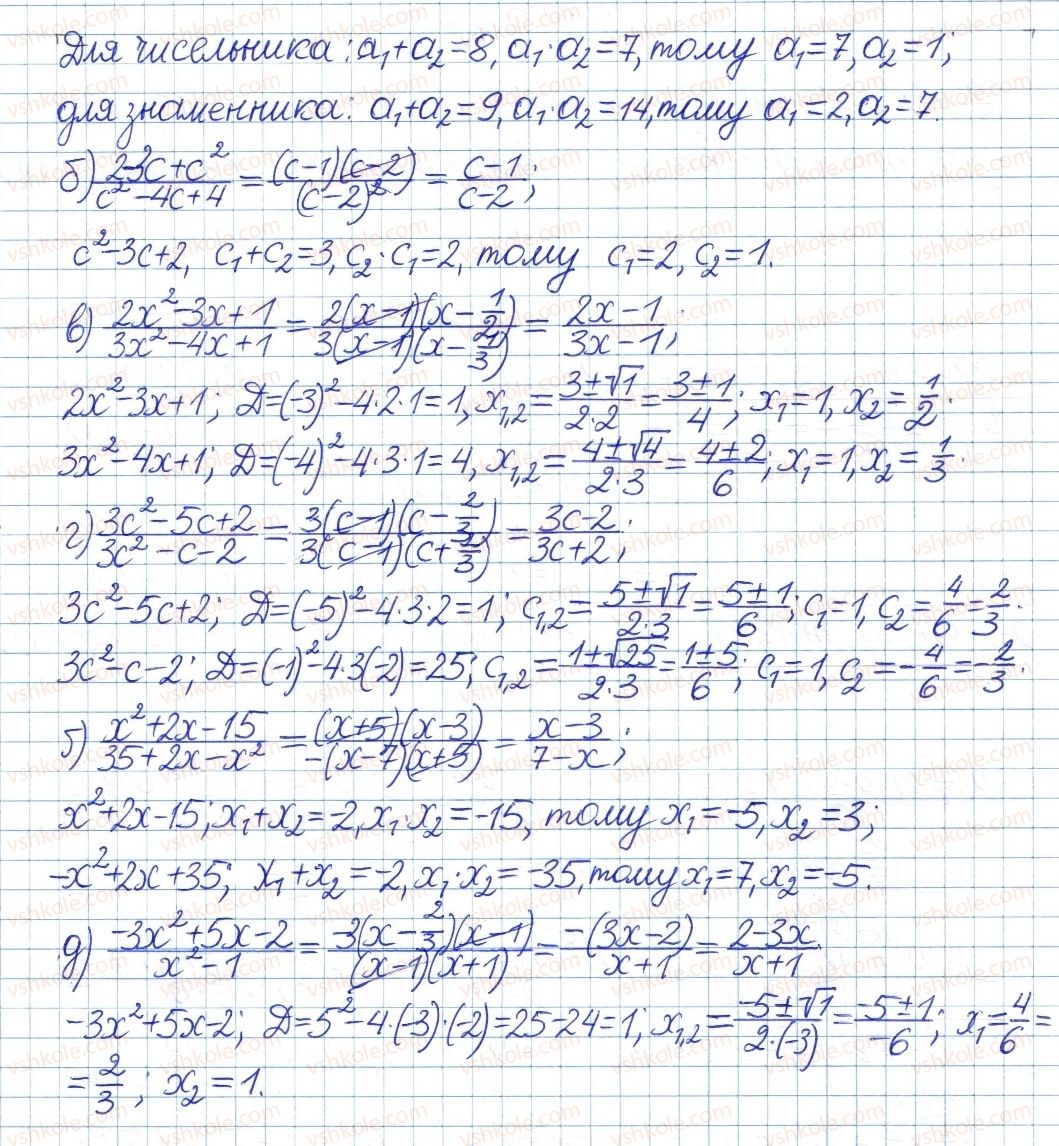 Для чисельника: a₁+a₂=8, a₁·a₂=7, тому a₁=7, a₂=1;
для знаменника: a₁+a₂=9, a₁·a₂=14, тому a₁=2, a₂=7.
б) (2-3c+c²)/(c²-4c+4) = ((c-1)(c-2))/((c-2)²) = (c-1)/(c-2);
c²-3c+2, c₁+c₂=3, c₂·c₁=2, тому c₁=2, c₂=1.
в) (2x²-3x+1)/(3x²-4x+1) = (2(x-1)(x-1/2))/(3(x-1)(x-1/3)) = (2x-1)/(3x-1);
2x²-3x+1; D=(-3)²-4·2·1=1, x₁,₂=(3±√1)/(2·2)=(3±1)/4; x₁=1, x₂=1/2.
3x²-4x+1; D=(-4)²-4·3·1=4, x₁,₂=(4±√4)/(2·3)=(4±2)/6; x₁=1, x₂=1/3.
г) (3c²-5c+2)/(3c²-c-2) = (3(c-1)(c-2/3))/(3(c-1)(c+2/3)) = (3c-2)/(3c+2);
3c²-5c+2; D=(-5)²-4·3·2=1; c₁,₂=(5±√1)/(2·3)=(5±1)/6; c₁=1, c₂=4/6=2/3.
3c²-c-2; D=(-1)²-4·3(-2)=25; c₁,₂=(1±√25)/(2·3)=(1±5)/6; c₁=1, c₂=-4/6=-2/3.
б) (x²+2x-15)/(35+2x-x²) = ((x+5)(x-3))/(-(x-7)(x+5)) = (x-3)/(7-x);
x²+2x-15; x₁+x₂=-2, x₁·x₂=-15, тому x₁=-5, x₂=3;
-x²+2x+35; x₁+x₂=-2, x₁·x₂=-35, тому x₁=7, x₂=-5.
д) (-3x²+5x-2)/(x²-1) = (-3(x-2/3)(x-1))/((x-1)(x+1)) = (-(3x-2))/(x+1) = (2-3x)/(x+1).
-3x²+5x-2; D=5²-4·(-3)·(-2)=25-24=1; x₁,₂=(-5±√1)/(2·(-3))=(-5±1)/(-6); x₁=4/6=
=2/3; x₂=1.
vshkole.com